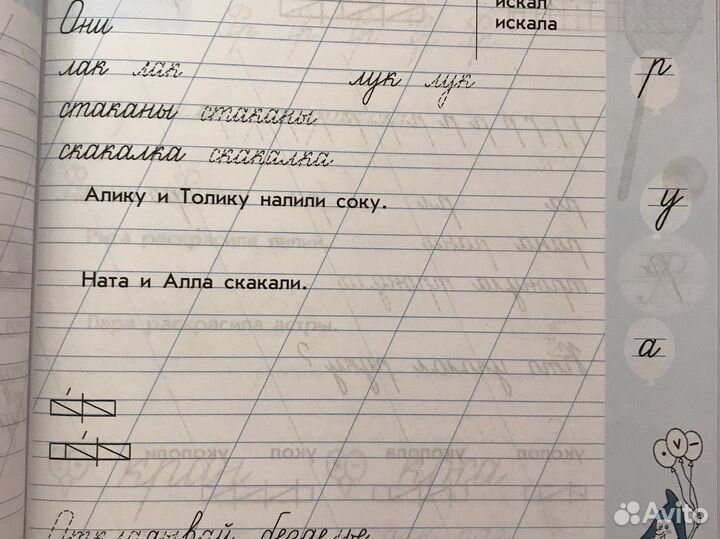 искал
Они
искала
лак лак лук лук
стаканы стаканы
скакалка скакалка
Алику и Толику налили соку.
Ната и Алла скакали.
р
у
а
Avito